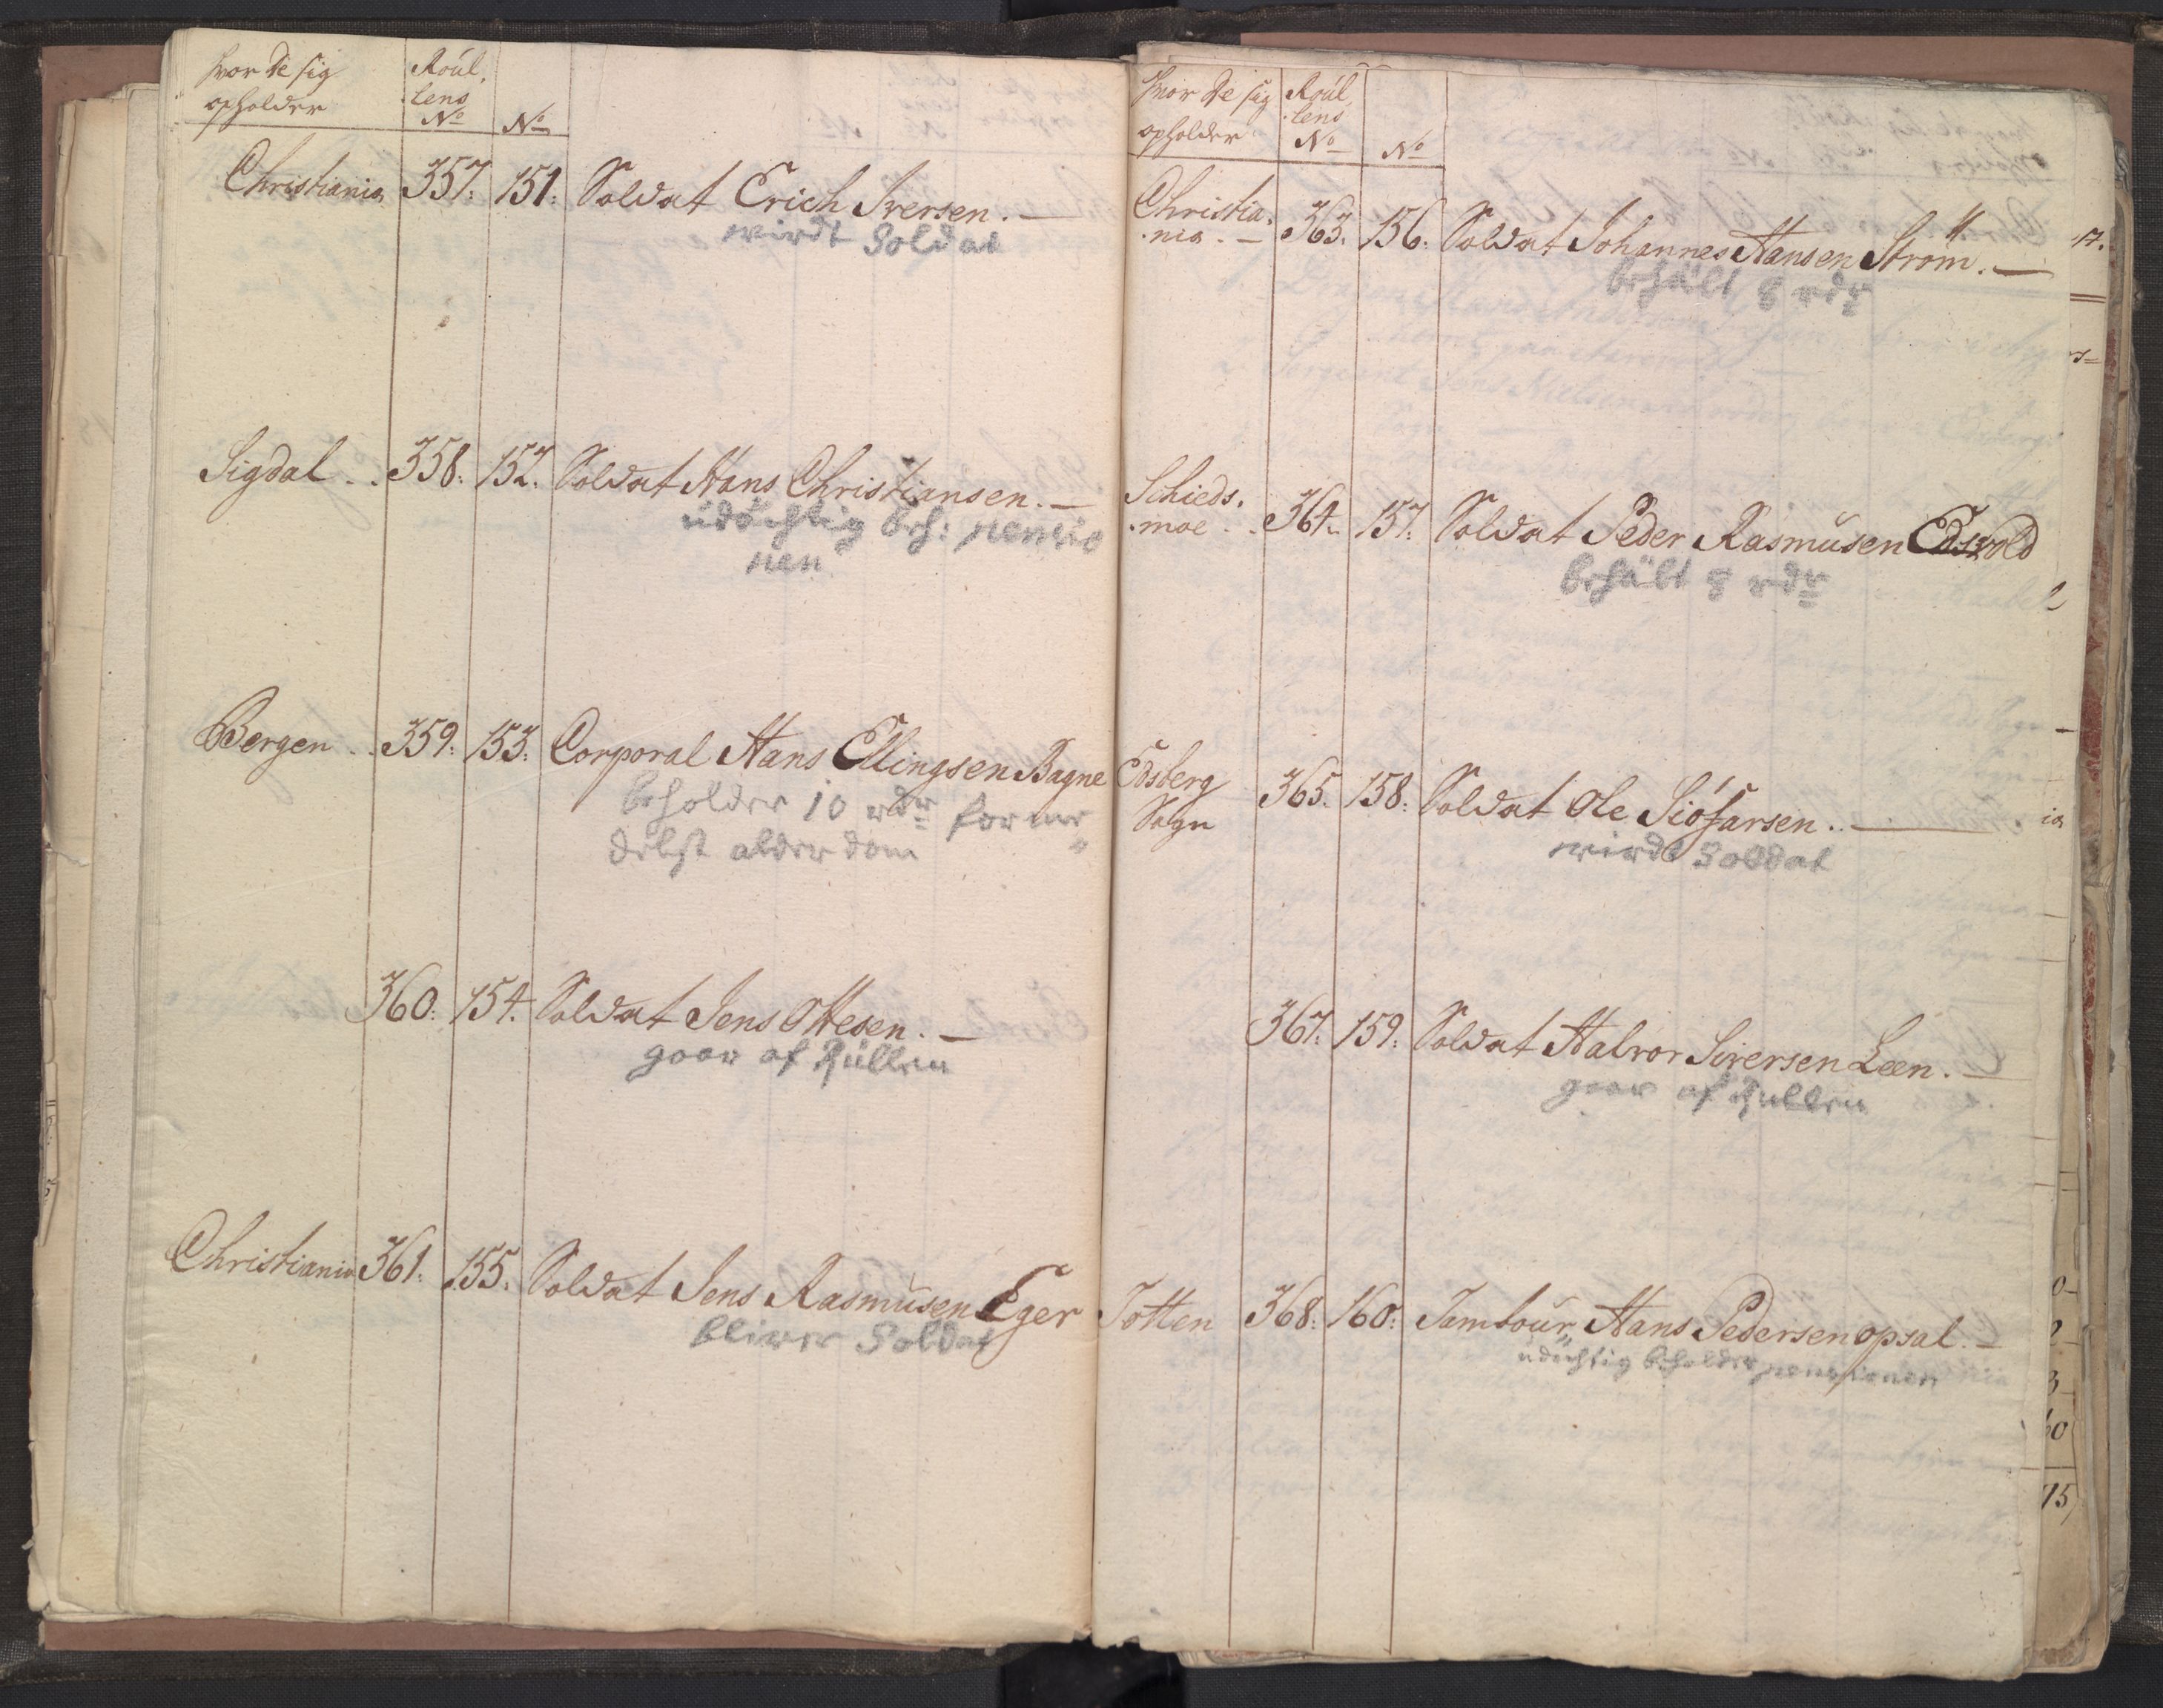 hvor de sig opholder Roul. lens No No
Christiania 357: 151: Soldat Erich Iversen. —
wirdt Soldat
Sigdal .. 358: 152. Soldat Hans Christiansen. —
udüchtig beh: pensio
nen
Bergen .. 359: 153: Corporal Hans Ellingsen Bagne
beholder 10 rdr formee
delst alderdom
360: 154. Soldat Jens Ottesen. —
gaar af Rullen
Christiania 361: 155. Soldat Jens Rasmusen Eger
bliver Soldat
Hvor de sig opholder Roul. lens No No
Christia. .nia. — 363. 156. Soldat Johannes Hansen Ström. —
behält 8 rdr
Schieds. .moe .. 364. 157. Soldat Peder Rasmusen Edsvold
behält 8 rdr
Edsberg Sogn 365. 158: Soldat Ole Siöfarsen. —
wirdt Soldat
367. 159: Soldat Halvor Siversen Leen. —
gaar af Rullen
Totten 368: 160: Tambour Hans Pedersen Opsal. —
udüchtig beholder pensionen